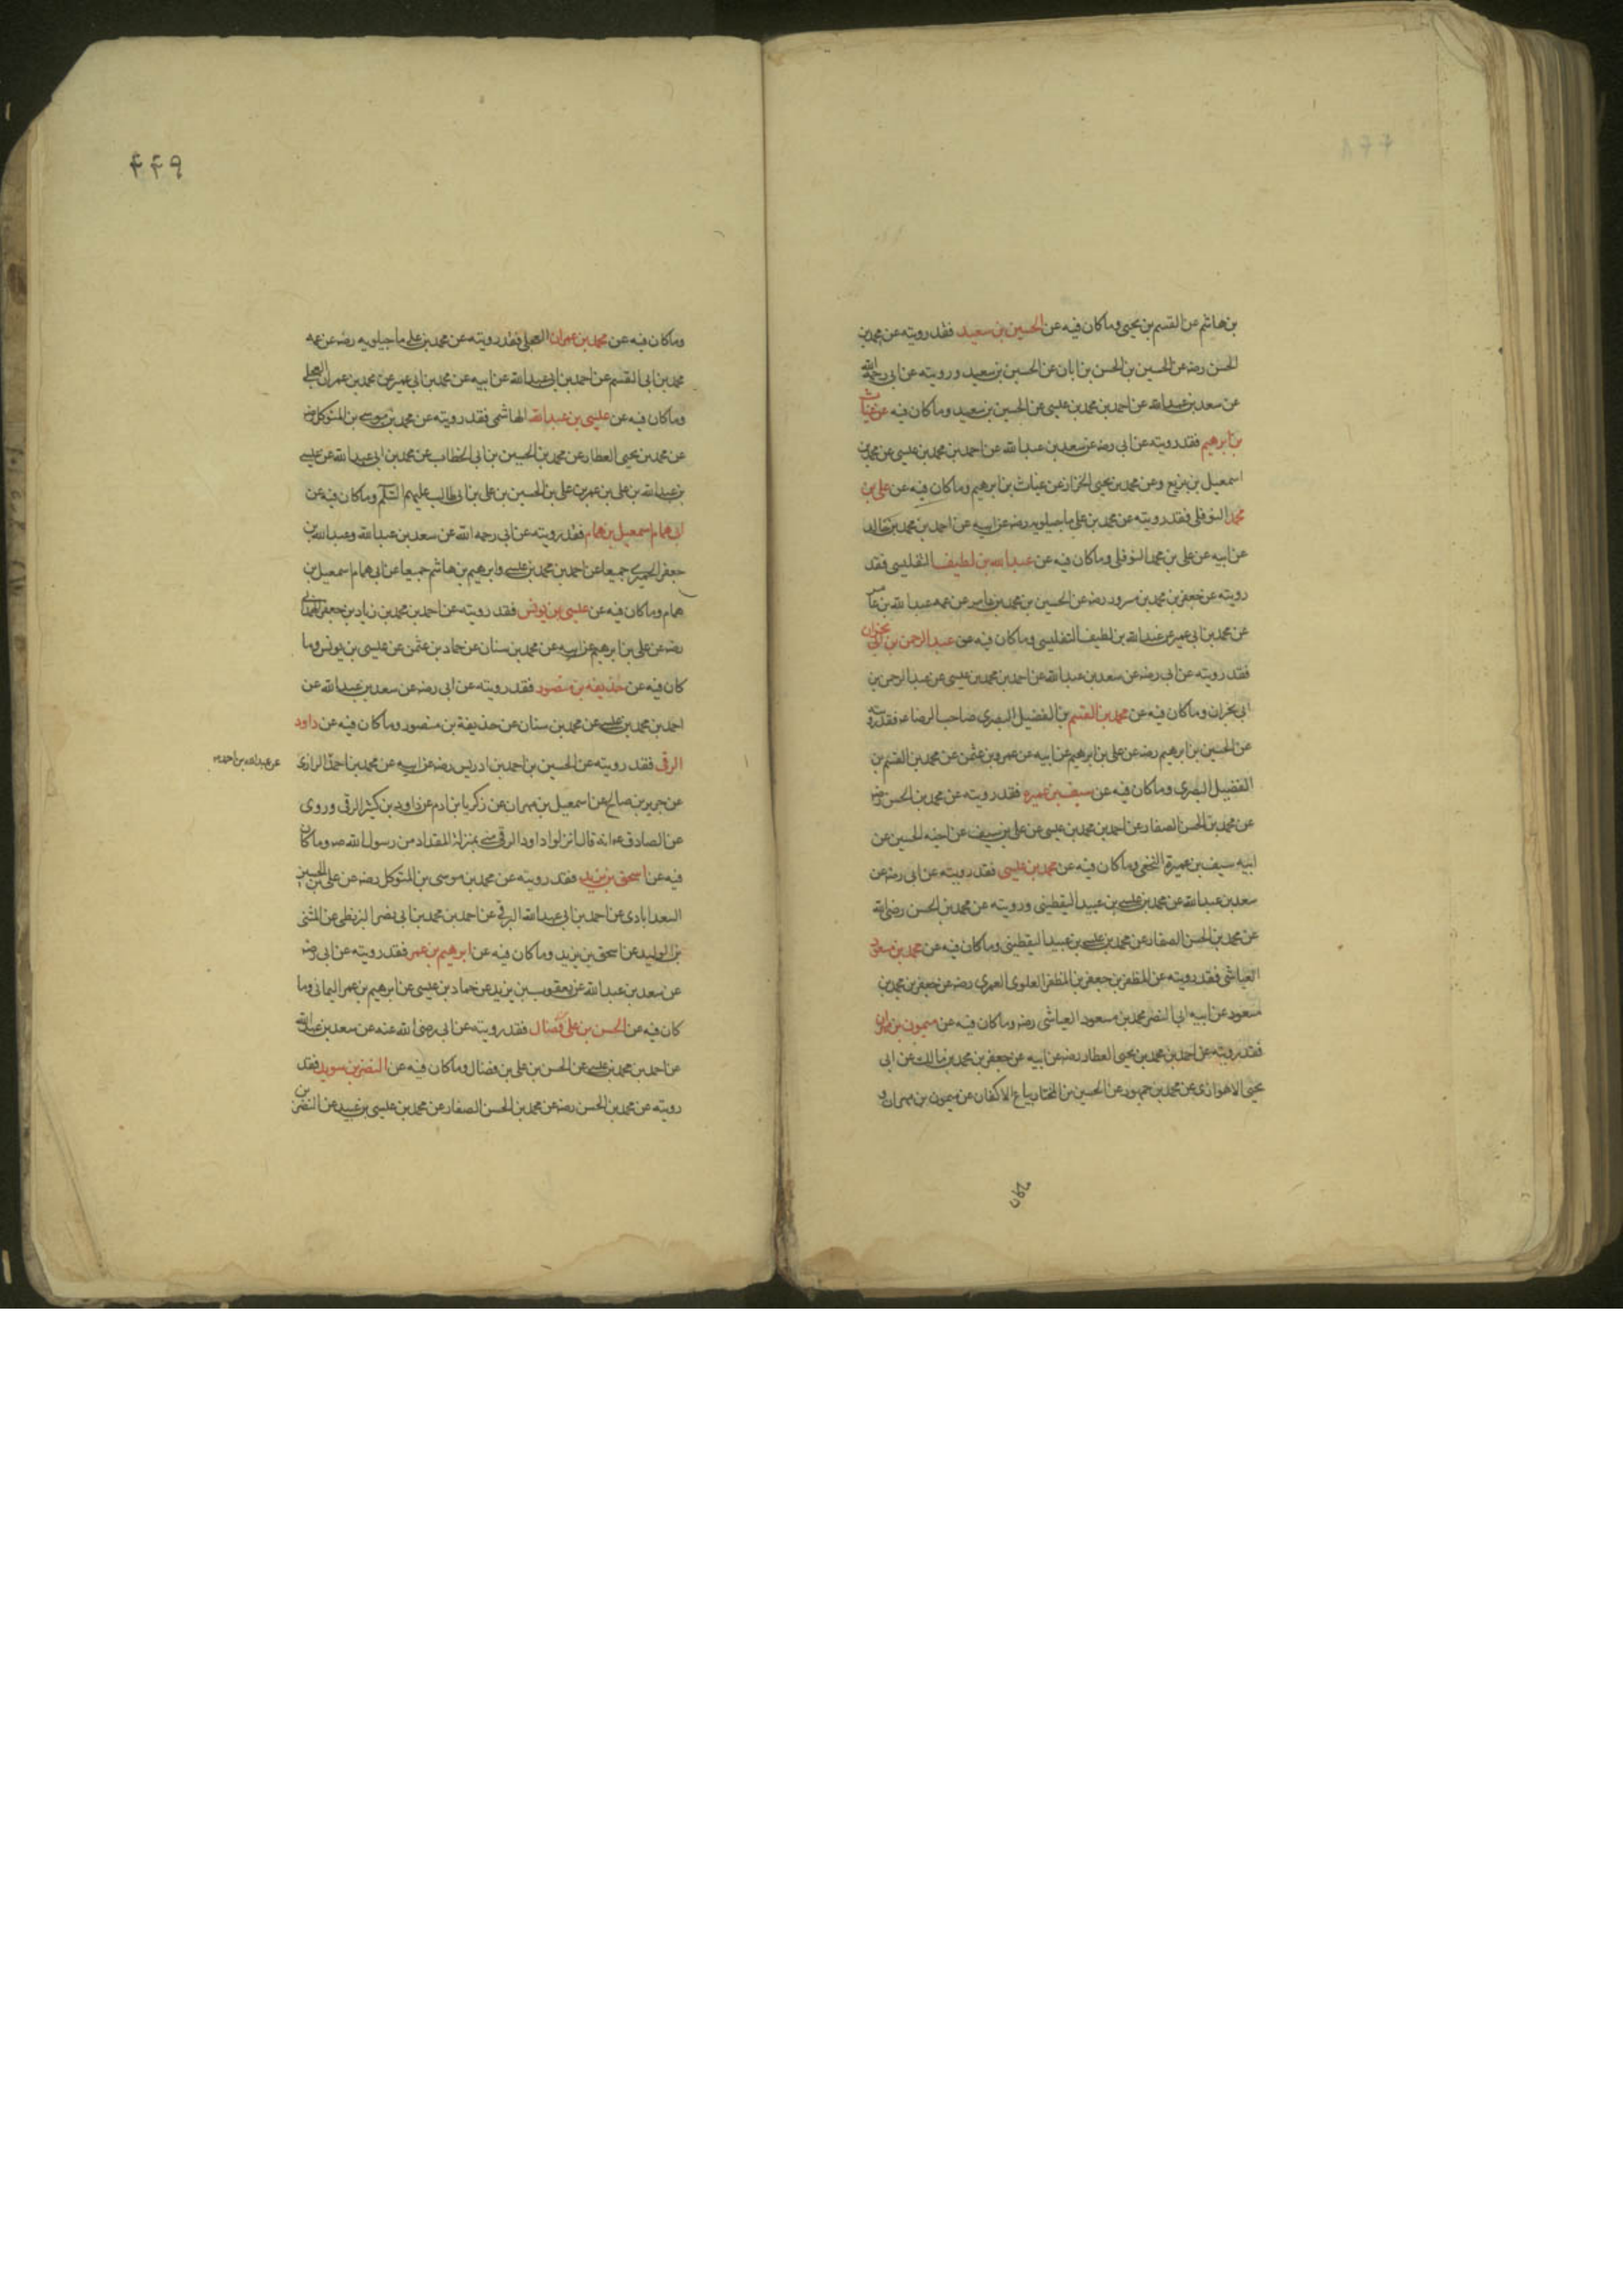 بن هاشم عن القسم بن يحيى وما كان فيه عن الحسين بن سعيد فقد رويته عن محمد بن
الحسن رضه عن الحسين بن الحسن بن ابان عن الحسين بن سعيد ورويته عن ابى رحمه الله
عن سعد بن عبد الله عن احمد بن محمد بن عيسى عن الحسين بن سعيد وما كان فيه عن غياث
بن ابرهيم فقد رويته عن ابى رضه عن سعد بن عبد الله عن احمد بن محمد بن عيسى عن محمد بن
اسمعيل بن بزيع وعن محمد بن يحيى الخزاز عن غياث بن ابرهيم وما كان فيه عن على بن
محمد النوفلى فقد رويته عن محمد بن على ماجيلويه رضه عن ابيه عن احمد بن محمد بن خالد
عن ابيه عن على بن محمد النوفلى وما كان فيه عن عبد الله بن لطيف التفليسى فقد
رويته عن جعفر بن محمد بن مسرور رضه عن الحسين بن محمد بن عامر عن عمه عبد الله بن عامر
عن محمد بن ابى عمير عن عبد الله بن لطيف التفليسى وما كان فيه عن عبد الرحمن بن ابى نجران
فقد رويته عن ابى رضه عن سعد بن عبد الله عن احمد بن محمد بن عيسى عن عبد الرحمن بن
ابى نجران وما كان فيه عن محمد بن القسم بن الفضيل البصرى صاحب الرضا ع فقد رويته
عن الحسين بن ابرهيم رضه عن على بن ابرهيم عن ابيه عن عمرو بن عثمن عن محمد بن القسم بن
الفضيل البصرى وما كان فيه عن سيف بن عميره فقد رويته عن محمد بن الحسن رضه
عن محمد بن الحسن الصفار عن احمد بن محمد بن عيسى عن على بن سيف عن اخيه الحسين عن
ابيه سيف بن عميرة النخعى وما كان فيه عن محمد بن عيسى فقد رويته عن ابى رضه عن
سعد بن عبد الله عن محمد بن عيسى بن عبيد اليقطينى ورويته عن محمد بن الحسن رضى الله
عن محمد بن الحسن الصفار عن محمد بن عيسى بن عبيد اليقطينى وما كان فيه عن محمد بن مسعود
العياشى فقد رويته عن المظفر بن جعفر بن المظفر العلوى العمرى رضه عن جعفر بن محمد بن
مسعود عن ابيه ابى النضر محمد بن مسعود العياشى رضه وما كان فيه عن ميمون بن مهران
فقد رويته عن احمد بن محمد بن يحيى العطار رضه عن ابيه عن جعفر بن محمد بن مالك عن ابى
يحيى الاهوازى عن محمد بن جمهور عن الحسين بن المختار بياع الاكفان عن ميمون بن مهران و
۴۴۹
وما كان فيه عن محمد بن عمران العجلى فقد رويته عن محمد بن على ماجيلويه رضه عن عمه
محمد بن ابى القسم عن احمد بن ابى عبد الله عن ابيه عن محمد بن ابى عمير عن محمد بن عمران العجلى
وما كان فيه عن عيسى بن عبد الله الهاشمى فقد رويته عن محمد بن موسى بن المتوكل رضه
عن محمد بن يحيى العطار عن محمد بن الحسين بن ابى الخطاب عن محمد بن ابى عبد الله عن عيسى
بن عبد الله بن على بن عمر بن على بن الحسين بن على بن ابى طالب عليهم السلم وما كان فيه عن
ابى همام اسمعيل بن همام فقد رويته عن ابى رحمه الله عن سعد بن عبد الله وعبد الله بن
جعفر الحميرى جميعا عن احمد بن محمد بن عيسى وابرهيم بن هاشم جميعا عن ابى همام اسمعيل بن
همام وما كان فيه عن عيسى بن يونس فقد رويته عن احمد بن محمد بن زياد بن جعفر الهمدانى
رضه عن على بن ابرهيم عن ابيه عن محمد بن سنان عن حماد بن عثمن عن عيسى بن يونس وما
كان فيه عن حذيفه بن منصور فقد رويته عن ابى رضه عن سعد بن عبد الله عن
احمد بن محمد بن عيسى عن محمد بن سنان عن حذيفة بن منصور وما كان فيه عن داود
الرقى فقد رويته عن الحسين بن احمد بن ادريس رضه عن ابيه عن محمد بن احمد الرازى
عن عبد الله بن احمد
عن حريز بن صالح عن اسمعيل بن مهران عن زكريا بن ادم عن داود بن كثير الرقى وروى
عن الصادق ع انه قال انزلوا داود الرقى منى بمنزلة المقداد من رسول الله ص وما كان
فيه عن اسحق بن يزيد فقد رويته عن محمد بن موسى بن المتوكل رضه عن على بن الحسين
السعدابادى عن احمد بن ابى عبد الله البرقى عن احمد بن محمد بن ابى نصر البزنطى عن المثنى
بن الوليد عن اسحق بن يزيد وما كان فيه عن ابرهيم بن عمر فقد رويته عن ابى رضه
عن سعد بن عبد الله عن يعقوب بن يزيد عن حماد بن عيسى عن ابرهيم بن عمر اليمانى وما
كان فيه عن الحسن بن على فضال فقد رويته عن ابى رضى الله عنه عن سعد بن عبد الله
عن احمد بن محمد بن عيسى عن الحسن بن على بن فضال وما كان فيه عن النضر بن سويد فقد
رويته عن محمد بن الحسن رضه عن محمد بن الحسن الصفار عن محمد بن عيسى بن عبيد عن النضر بن